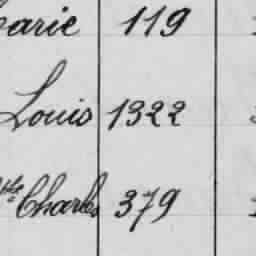 arie 119
Louis 1322
Charles 379